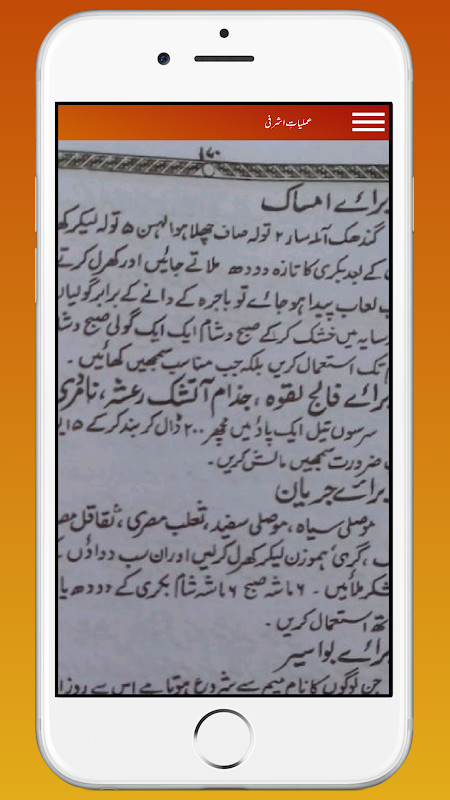 عملیات اشرفی
۱۷۰
برائے امساک
گندھک آملہ سار ۲ تولہ صاف چھلا ہوا لہسن ۵ تولہ لیکر کھ
کے بعد بکری کا تازہ دودھ ملاتے جائیں اور کھرل کرتے
لعاب پیدا ہو جائے تو باجرہ کے دانے کے برابر گولیاں
سایہ میں خشک کر کے صبح و شام ایک ایک گولی صبح وشا
تک استعمال کریں بلکہ جب مناسب سمجھیں کھائیں۔
برائے فالج لقوہ، جذام آتشک رعشہ، نامردی
سرسوں تیل ایک پاؤ میں مچھر ۲۰۰ ڈال کر بند کر کے ۱۵
ضرورت سمجھیں مالش کریں۔
برائے جریان
موصلی سیاہ، موصلی سفید، ثعلب مصری، ثقاقل مص
، گری ہموزن لیکر کھرل کر لیں اور ان سب دواؤں
شکر ملائیں۔ ۶ ماشہ صبح ۶ ماشہ شام بکری کے دودھ یا
استعمال کریں۔
برائے بواسیر
جن لوگوں کا نام میم سے شروع ہوتا ہے اس سے روزا